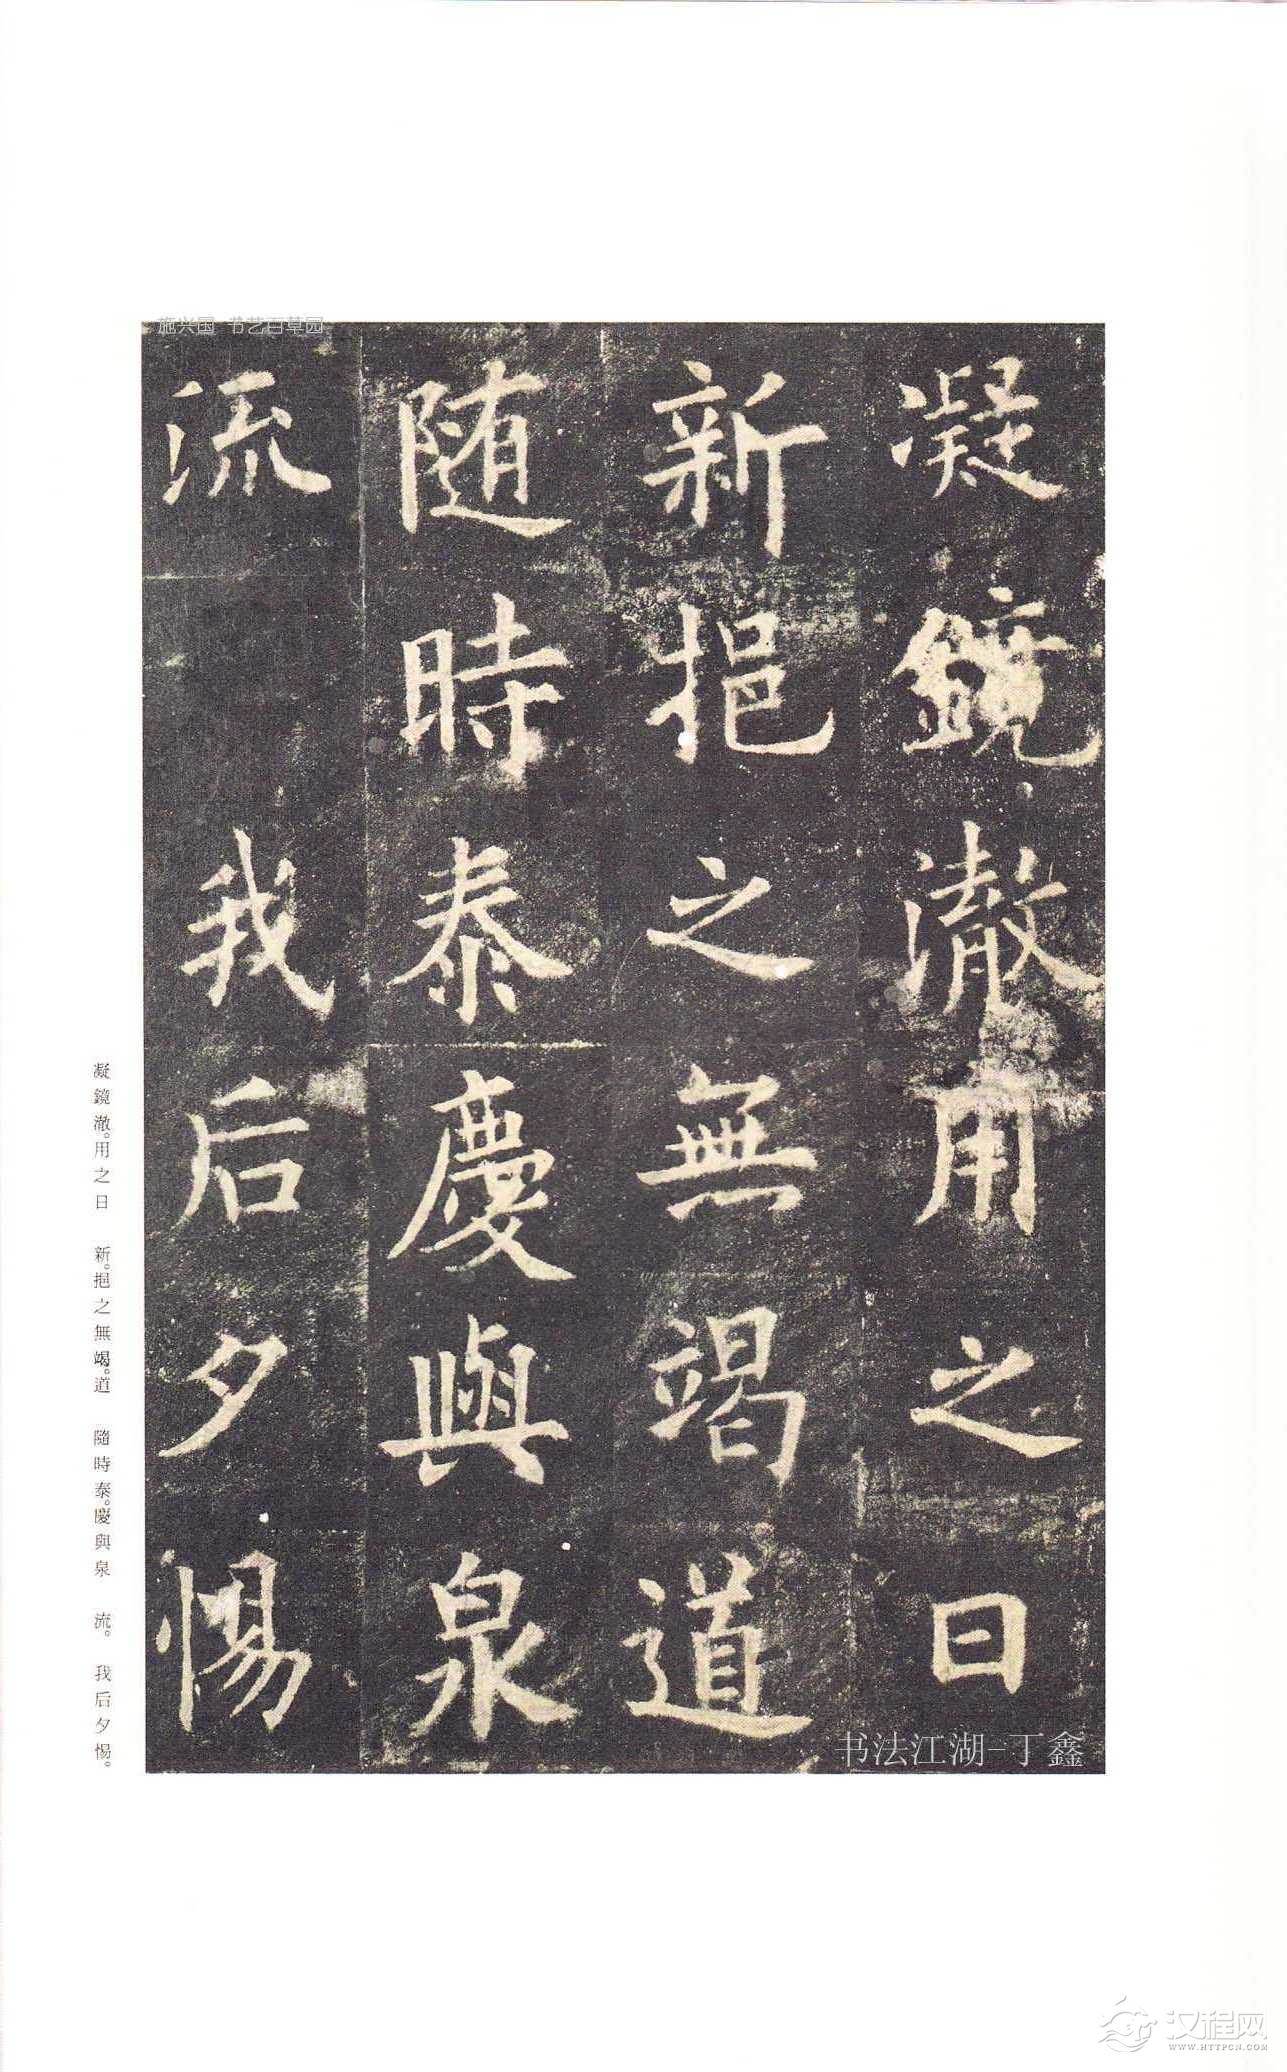 施兴国 书艺百草园
凝鏡澈用之日
新挹之無竭道
随時泰慶與泉
流 我后夕惕
凝鏡澈。用之日 新。挹之無竭。道 隨時泰。慶與泉 流。 我后夕惕。
书法江湖-丁鑫
汉程网
WWW.HTTPCN.COM